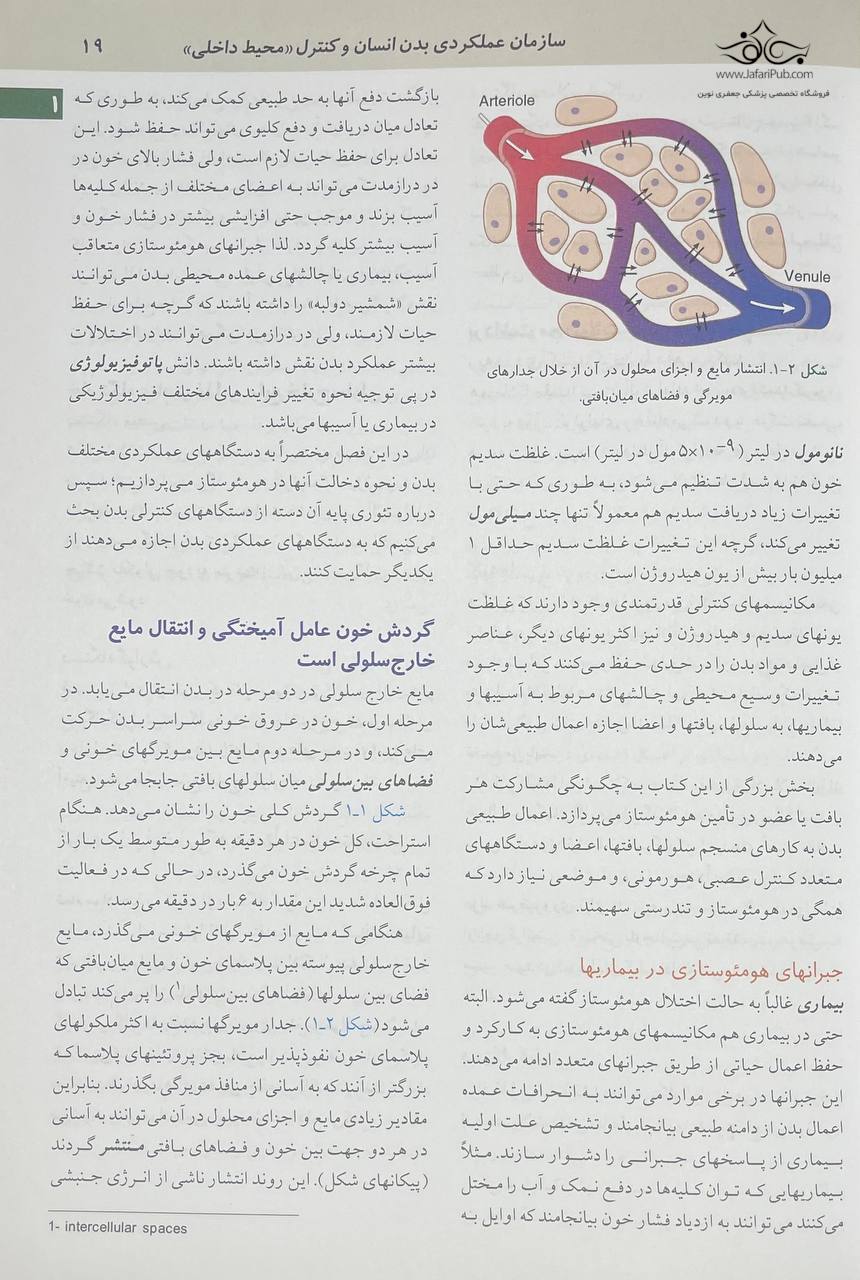 سازمان عملکردی بدن انسان و کنترل «محیط داخلی»
۱۹
www.JafariPub.com
فروشگاه تخصصی پزشکی جعفری نوین
۱
Arteriole
Venule
شکل ۲-۱. انتشار مایع و اجزای محلول در آن از خلال جدارهای
مویرگی و فضاهای میان‌بافتی.
نانومول در لیتر (۵×۱۰−۹ مول در لیتر) است. غلظت سدیم
خون هم به شدت تنظیم می‌شود، به طوری که حتی با
تغییرات زیاد دریافت سدیم هم معمولاً تنها چند میلی‌مول
تغییر می‌کند، گرچه این تغییرات غلظت سدیم حداقل ۱
میلیون بار بیش از یون هیدروژن است.
مکانیسمهای کنترلی قدرتمندی وجود دارند که غلظت
یونهای سدیم و هیدروژن و نیز اکثر یونهای دیگر، عناصر
غذایی و مواد بدن را در حدی حفظ می‌کنند که با وجود
تغییرات وسیع محیطی و چالشهای مربوط به آسیبها و
بیماریها، به سلولها، بافتها و اعضا اجازه اعمال طبیعی‌شان را
می‌دهند.
بخش بزرگی از این کتاب به چگونگی مشارکت هر
بافت یا عضو در تأمین هومئوستاز می‌پردازد. اعمال طبیعی
بدن به کارهای منسجم سلولها، بافتها، اعضا و دستگاههای
متعدد کنترل عصبی، هورمونی، و موضعی نیاز دارد که
همگی در هومئوستاز و تندرستی سهیمند.
جبرانهای هومئوستازی در بیماریها
بیماری غالباً به حالت اختلال هومئوستاز گفته می‌شود. البته
حتی در بیماری هم مکانیسمهای هومئوستازی به کارکرد و
حفظ اعمال حیاتی از طریق جبرانهای متعدد ادامه می‌دهند.
این جبرانها در برخی موارد می‌توانند به انحرافات عمده
اعمال بدن از دامنه طبیعی بیانجامند و تشخیص علت اولیه
بیماری از پاسخهای جبرانی را دشوار سازند. مثلاً
بیماریهایی که توان کلیه‌ها در دفع نمک و آب را مختل
می‌کنند می‌توانند به ازدیاد فشار خون بیانجامند که اوایل به
بازگشت دفع آنها به حد طبیعی کمک می‌کند، به طوری که
تعادل میان دریافت و دفع کلیوی می‌تواند حفظ شود. این
تعادل برای حفظ حیات لازم است، ولی فشار بالای خون در
در درازمدت می‌تواند به اعضای مختلف از جمله کلیه‌ها
آسیب بزند و موجب حتی افزایشی بیشتر در فشار خون و
آسیب بیشتر کلیه گردد. لذا جبرانهای هومئوستازی متعاقب
آسیب، بیماری یا چالشهای عمده محیطی بدن می‌توانند
نقش «شمشیر دولبه» را داشته باشند که گرچه برای حفظ
حیات لازمند، ولی در درازمدت می‌توانند در اختلالات
بیشتر عملکرد بدن نقش داشته باشند. دانش پاتوفیزیولوژی
در پی توجیه نحوه تغییر فرایندهای مختلف فیزیولوژیکی
در بیماری یا آسیبها می‌باشد.
در این فصل مختصراً به دستگاههای عملکردی مختلف
بدن و نحوه دخالت آنها در هومئوستاز می‌پردازیم؛ سپس
درباره تئوری پایه آن دسته از دستگاههای کنترلی بدن بحث
می‌کنیم که به دستگاههای عملکردی بدن اجازه می‌دهند از
یکدیگر حمایت کنند.
گردش خون عامل آمیختگی و انتقال مایع
خارج‌سلولی است
مایع خارج سلولی در دو مرحله در بدن انتقال می‌یابد. در
مرحله اول، خون در عروق خونی سراسر بدن حرکت
می‌کند، و در مرحله دوم مایع بین مویرگهای خونی و
فضاهای بین‌سلولی میان سلولهای بافتی جابجا می‌شود.
شکل ۱ـ۱ گردش کلی خون را نشان می‌دهد. هنگام
استراحت، کل خون در هر دقیقه به طور متوسط یک بار از
تمام چرخه گردش خون می‌گذرد، در حالی که در فعالیت
فوق‌العاده شدید این مقدار به ۶ بار در دقیقه می‌رسد.
هنگامی که مایع از مویرگهای خونی می‌گذرد، مایع
خارج‌سلولی پیوسته بین پلاسمای خون و مایع میان‌بافتی که
فضای بین سلولها (فضاهای بین‌سلولی۱) را پر می‌کند تبادل
می‌شود (شکل ۲ـ۱). جدار مویرگها نسبت به اکثر ملکولهای
پلاسمای خون نفوذپذیر است، بجز پروتئینهای پلاسما که
بزرگتر از آنند که به آسانی از منافذ مویرگی بگذرند. بنابراین
مقادیر زیادی مایع و اجزای محلول در آن می‌توانند به آسانی
در هر دو جهت بین خون و فضاهای بافتی منتشر گردند
(پیکانهای شکل). این روند انتشار ناشی از انرژی جنبشی
1- intercellular spaces